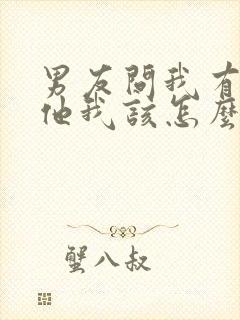 男友問我有
他我該怎麼
蟹八叔